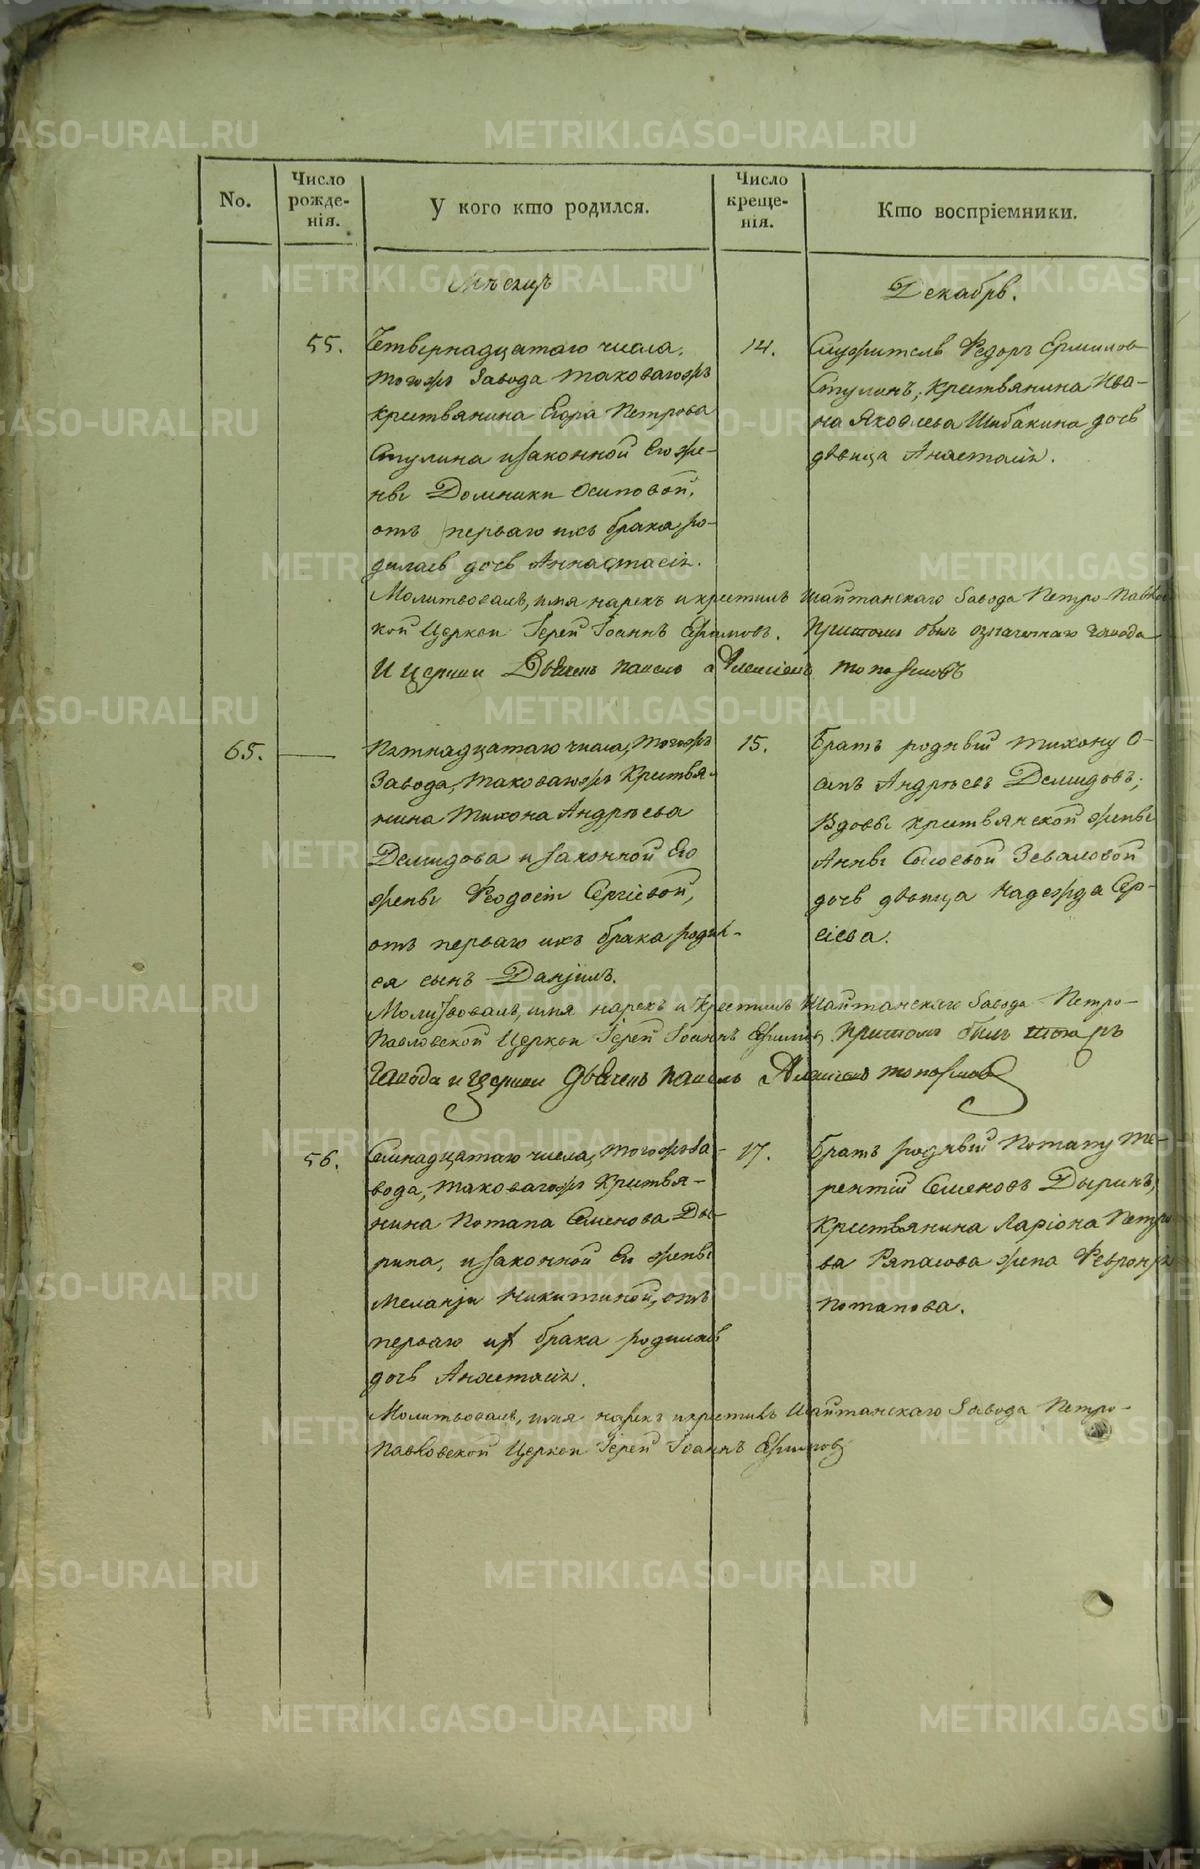 No.
Число рожде-нія.
У кого кто родился.
Число креще-нія.
Кто воспріемники.
Мѣсяцъ
Декабрь.
55.
Четвернадцатаго числа,
тогожъ Завода таковагожъ
крестьянина Егора Петрова
Стулина и законной Его же-
ны Домники Осиповой,
отъ перваго ихъ брака, ро-
дилась дочь Аннастасія.
14.
Служитель Федоръ Ермилов
Стулинъ, Крестьянина Ива-
на Яковлева Шибакина дочь
дѣвица Анастасія.
Молитвовалъ, имя нарекъ и крестилъ Шайтанскаго Завода Петро-Павлов
ской Церкви Іерей Іоаннъ Ефимовъ. При томъ былъ означеннаго завода
и церкви Дьячекъ Павелъ Алексіевъ Топорковъ
65.
Пятнадцатаго числа, тогожъ
Завода, таковагожъ Крестья-
нина Тихона Андрѣева
Демидова и законной Его
жены Феодосіи Сергіевой,
отъ перваго ихъ брака родил-
ся сынъ Даніилъ.
15.
Братъ родный Тихону О-
сипъ Андрѣевъ Демидовъ,
Вдовы крестьянской жены
Анны Сысоевой Зеваловой
дочь дѣвица Надежда Сер-
гіева.
Молитвовалъ, имя нарекъ и Крестилъ Шайтанскаго Завода Петро-
Павловской Церкви Іерей Іоаннъ Ефимовъ При томъ былъ тогожъ
Завода и церкви Дьячекъ Павелъ Алексіевъ Топорковъ
56.
Семнадцатаго числа, тогожъ За-
вода, таковагожъ Крестья-
нина Потапа Семенова Ды-
рина, и законной Его жены
Меланіи Никитиной, отъ
перваго ихъ брака родилась
дочь Анастасія.
17.
Братъ родный Потапу Те-
рентій Семеновъ Дыринъ,
Крестьянина Ларіона Петро
ва Ряпасова жена Февронія
Потапова.
Молитвовалъ, имя нарекъ и крестилъ Шайтанскаго Завода Петро-
Павловской Церкви Іерей Іоаннъ Ефимовъ